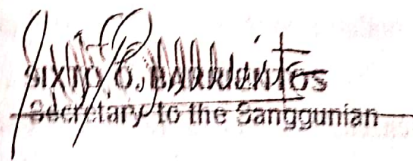 SIXTO O. BARRIENTOS
Secretary to the Sanggunian